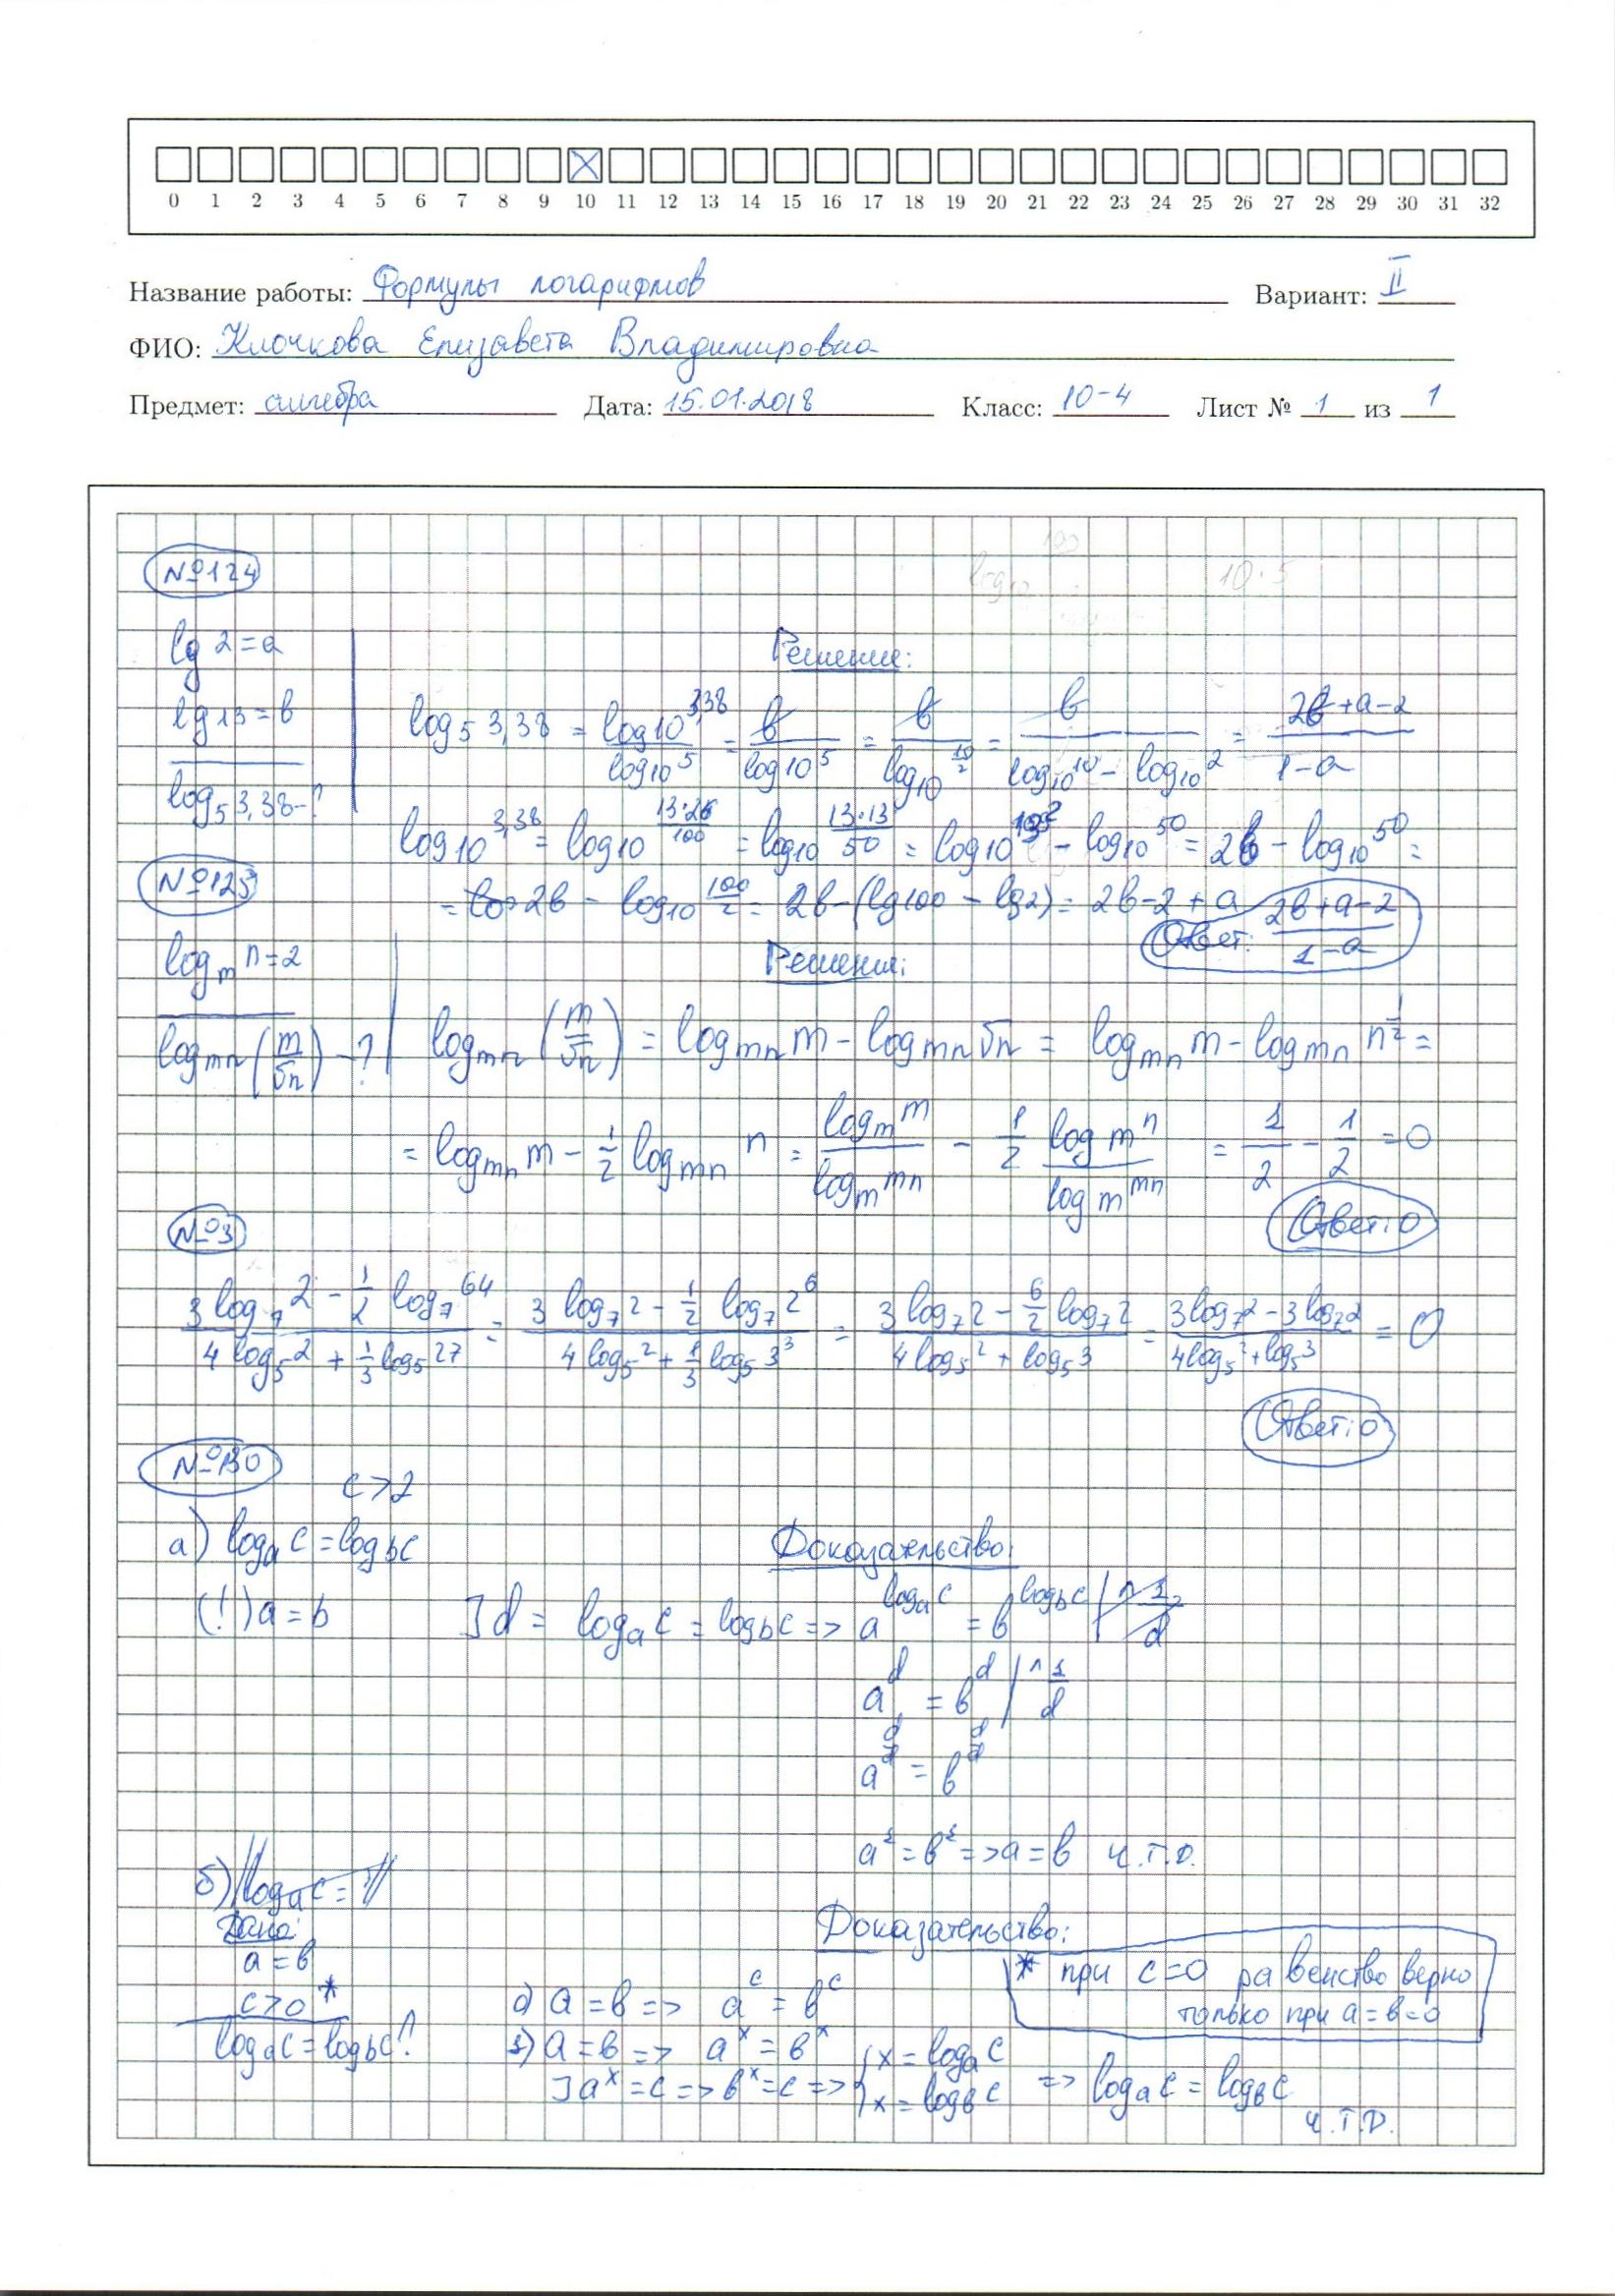 0 1 2 3 4 5 6 7 8 9 10 11 12 13 14 15 16 17 18 19 20 21 22 23 24 25 26 27 28 29 30 31 32
Название работы: Формулы логарифмов Вариант: II
ФИО: Клочкова Елизавета Владимировна
Предмет: алгебра Дата: 15.01.2018 Класс: 10-4 Лист № 1 из 1
№124
lg 2 = a
Решение:
lg 13 = b
log₅ 3,38 - ?
log₅ 3,38 = log10^3,38 / log10^5 = b / log10^5 = b / log10^(10/2) = b / (log10^10 - log10^2) = (2b+a-2) / (1-a)
log10^3,38 = log10^(13·26/100) = log10^(13·13/50) = log10^13² - log10^50 = 2b - log10^50 =
= 2b - log10^(100/2) = 2b - (lg100 - lg2) = 2b - 2 + a
Ответ: (2b+a-2) / (1-a)
№125
log_m n = 2
Решение:
log_mn (m/√n) - ?
log_mn (m/√n) = log_mn m - log_mn √n = log_mn m - log_mn n^(1/2) =
= log_mn m - 1/2 log_mn n = log_m m / log_m mn - 1/2 log_m n / log_m mn = 1/2 - 1/2 = 0
Ответ: 0
№3
(3 log₇ 2 - 1/2 log₇ 64) / (4 log₅ 2 + 1/3 log₅ 27) = (3 log₇ 2 - 1/2 log₇ 2⁶) / (4 log₅ 2 + 1/3 log₅ 3³) = (3 log₇ 2 - 6/2 log₇ 2) / (4 log₅ 2 + log₅ 3) = (3 log₇ 2 - 3 log₇ 2) / (4 log₅ 2 + log₅ 3) = 0
Ответ: 0
№130
c > 2
а) log_a c = log_b c
Доказательство:
(!) a = b
] d = log_a c = log_b c => a^(log_a c) = b^(log_b c) | ^ 1/d
a^d = b^d | ^ 1/d
a^(d/d) = b^(d/d)
a¹ = b¹ => a = b ч.т.д.
б) log_a c =
Дано:
a = b
c > 0 *
log_a c = log_b c ?
Доказательство:
* при c=0 равенство верно
только при a=b=0
0) a = b => a^c = b^c
1) a = b => a^x = b^x
] a^x = c => b^x = c => { x = log_a c
x = log_b c => log_a c = log_b c
ч.т.д.